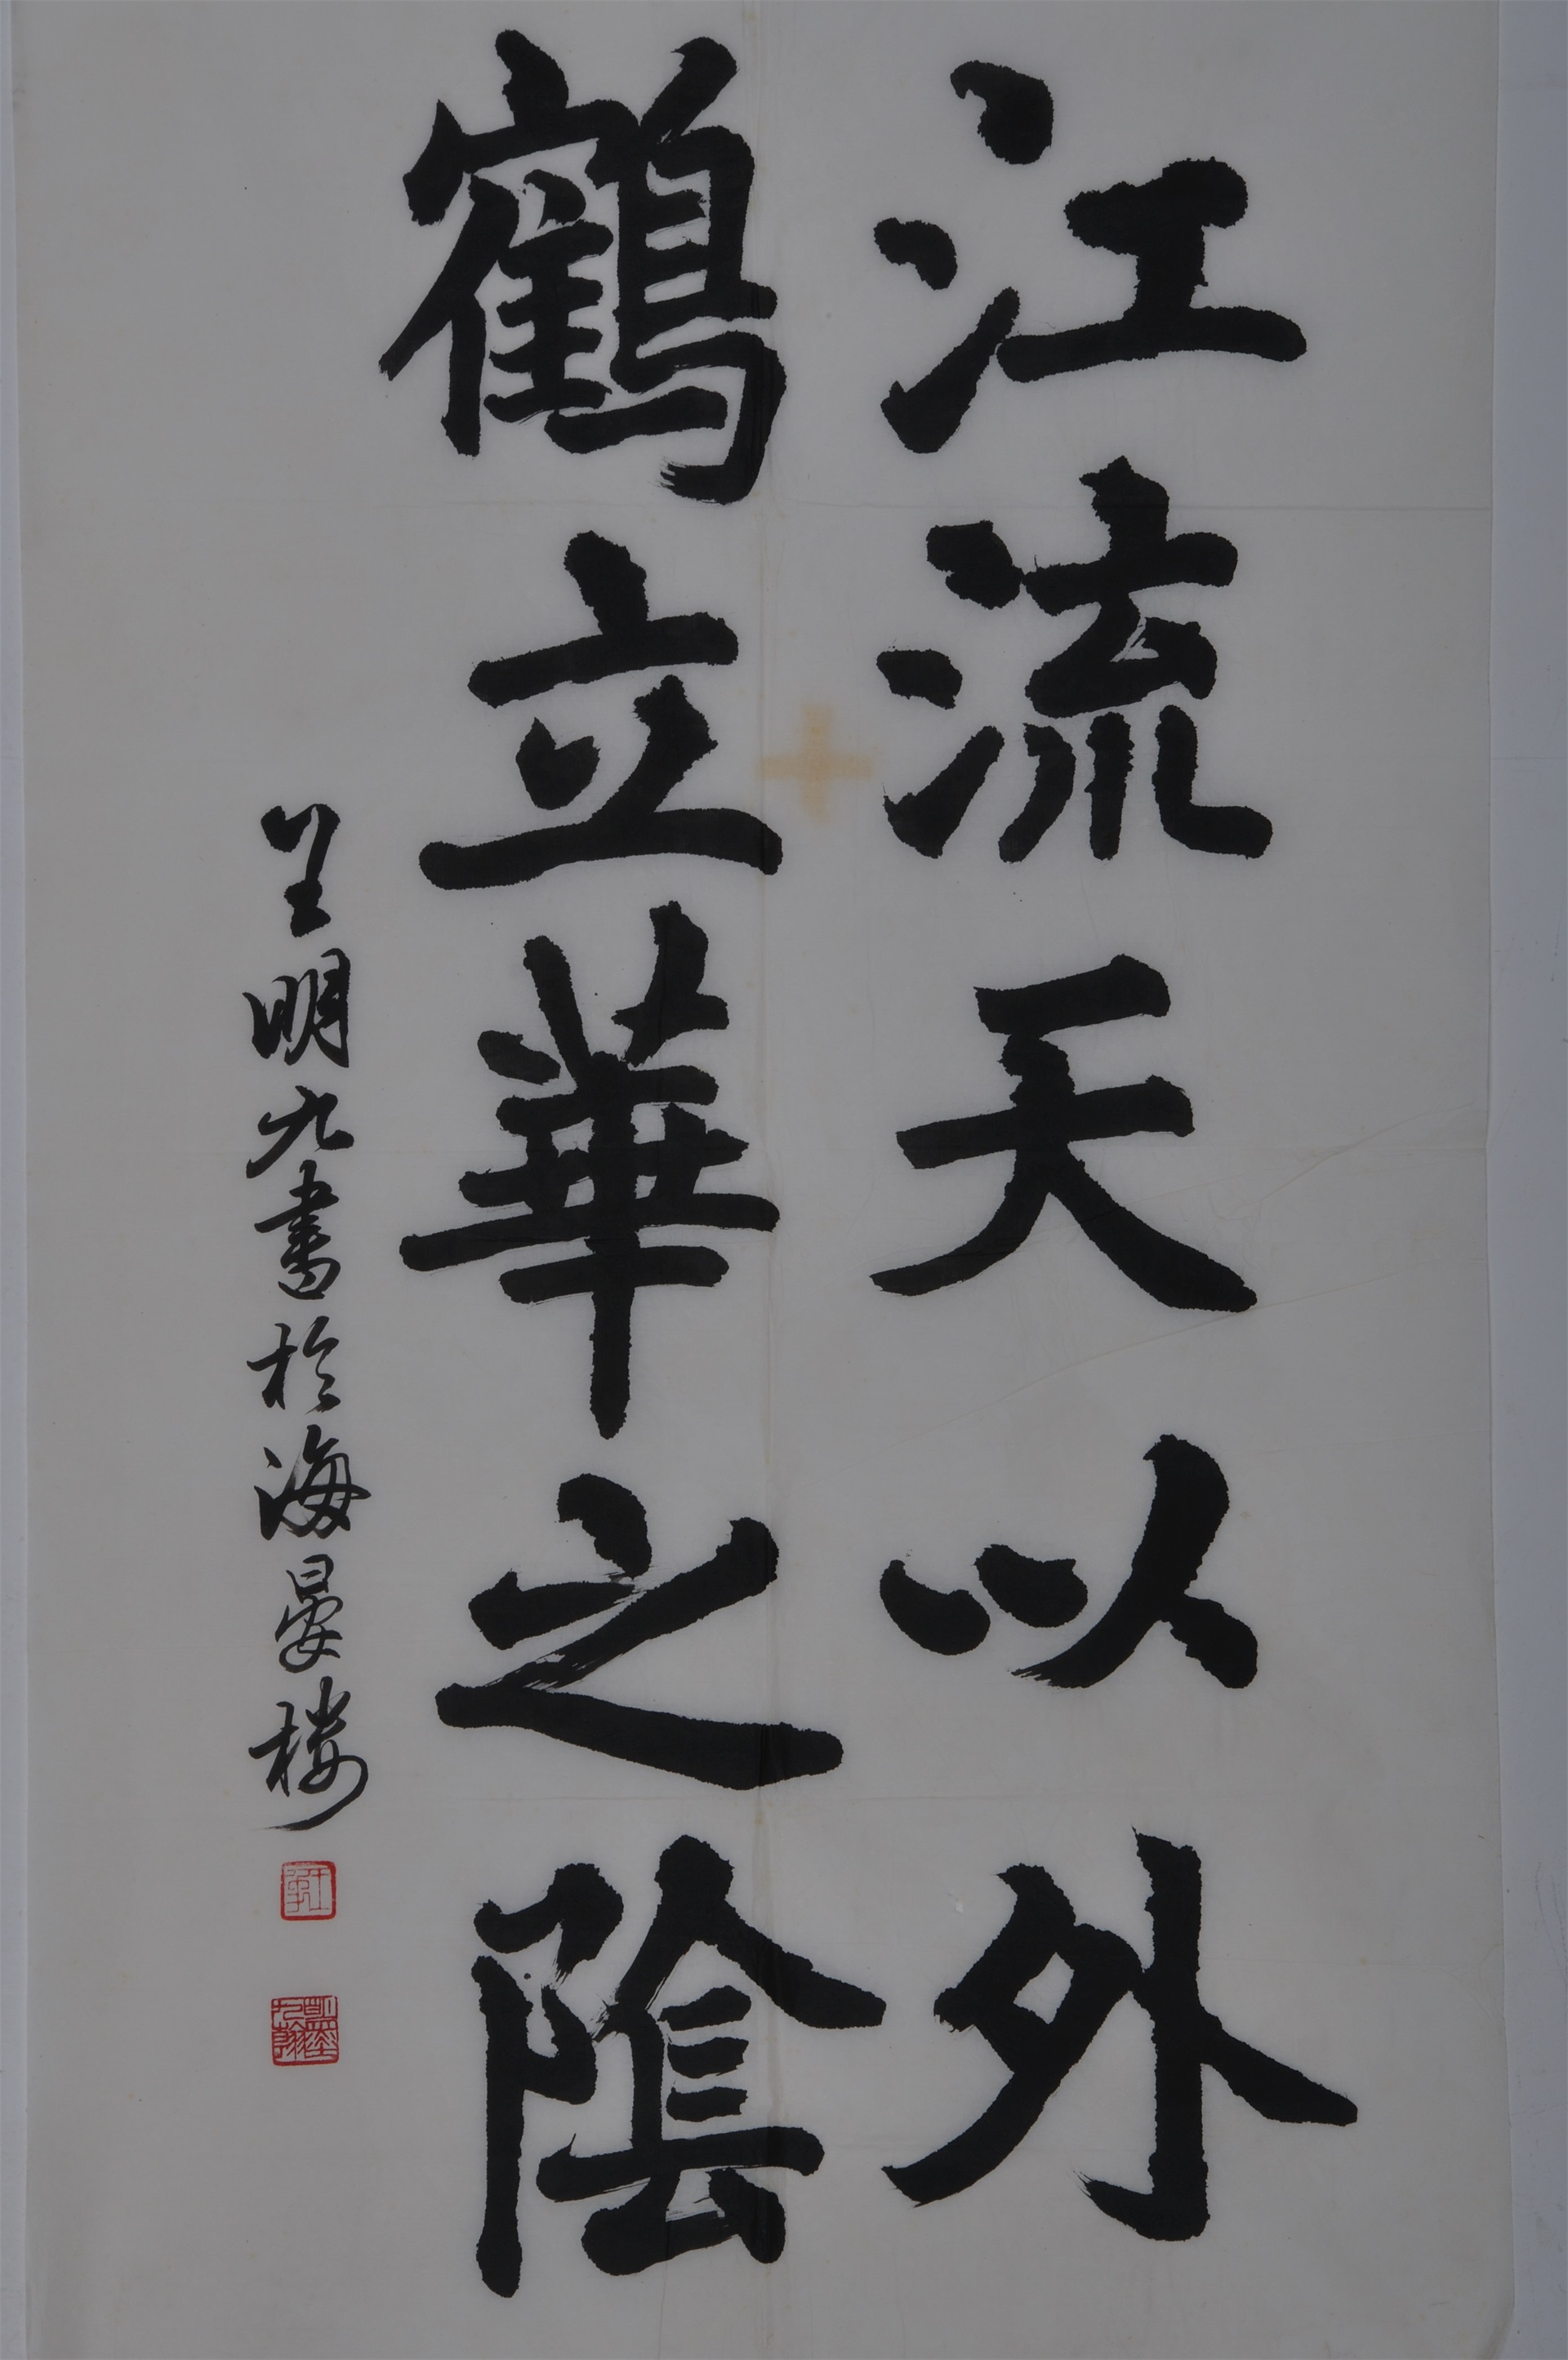 江流天以外
鶴立華之陰
明九書於海晏樓
明九翰墨